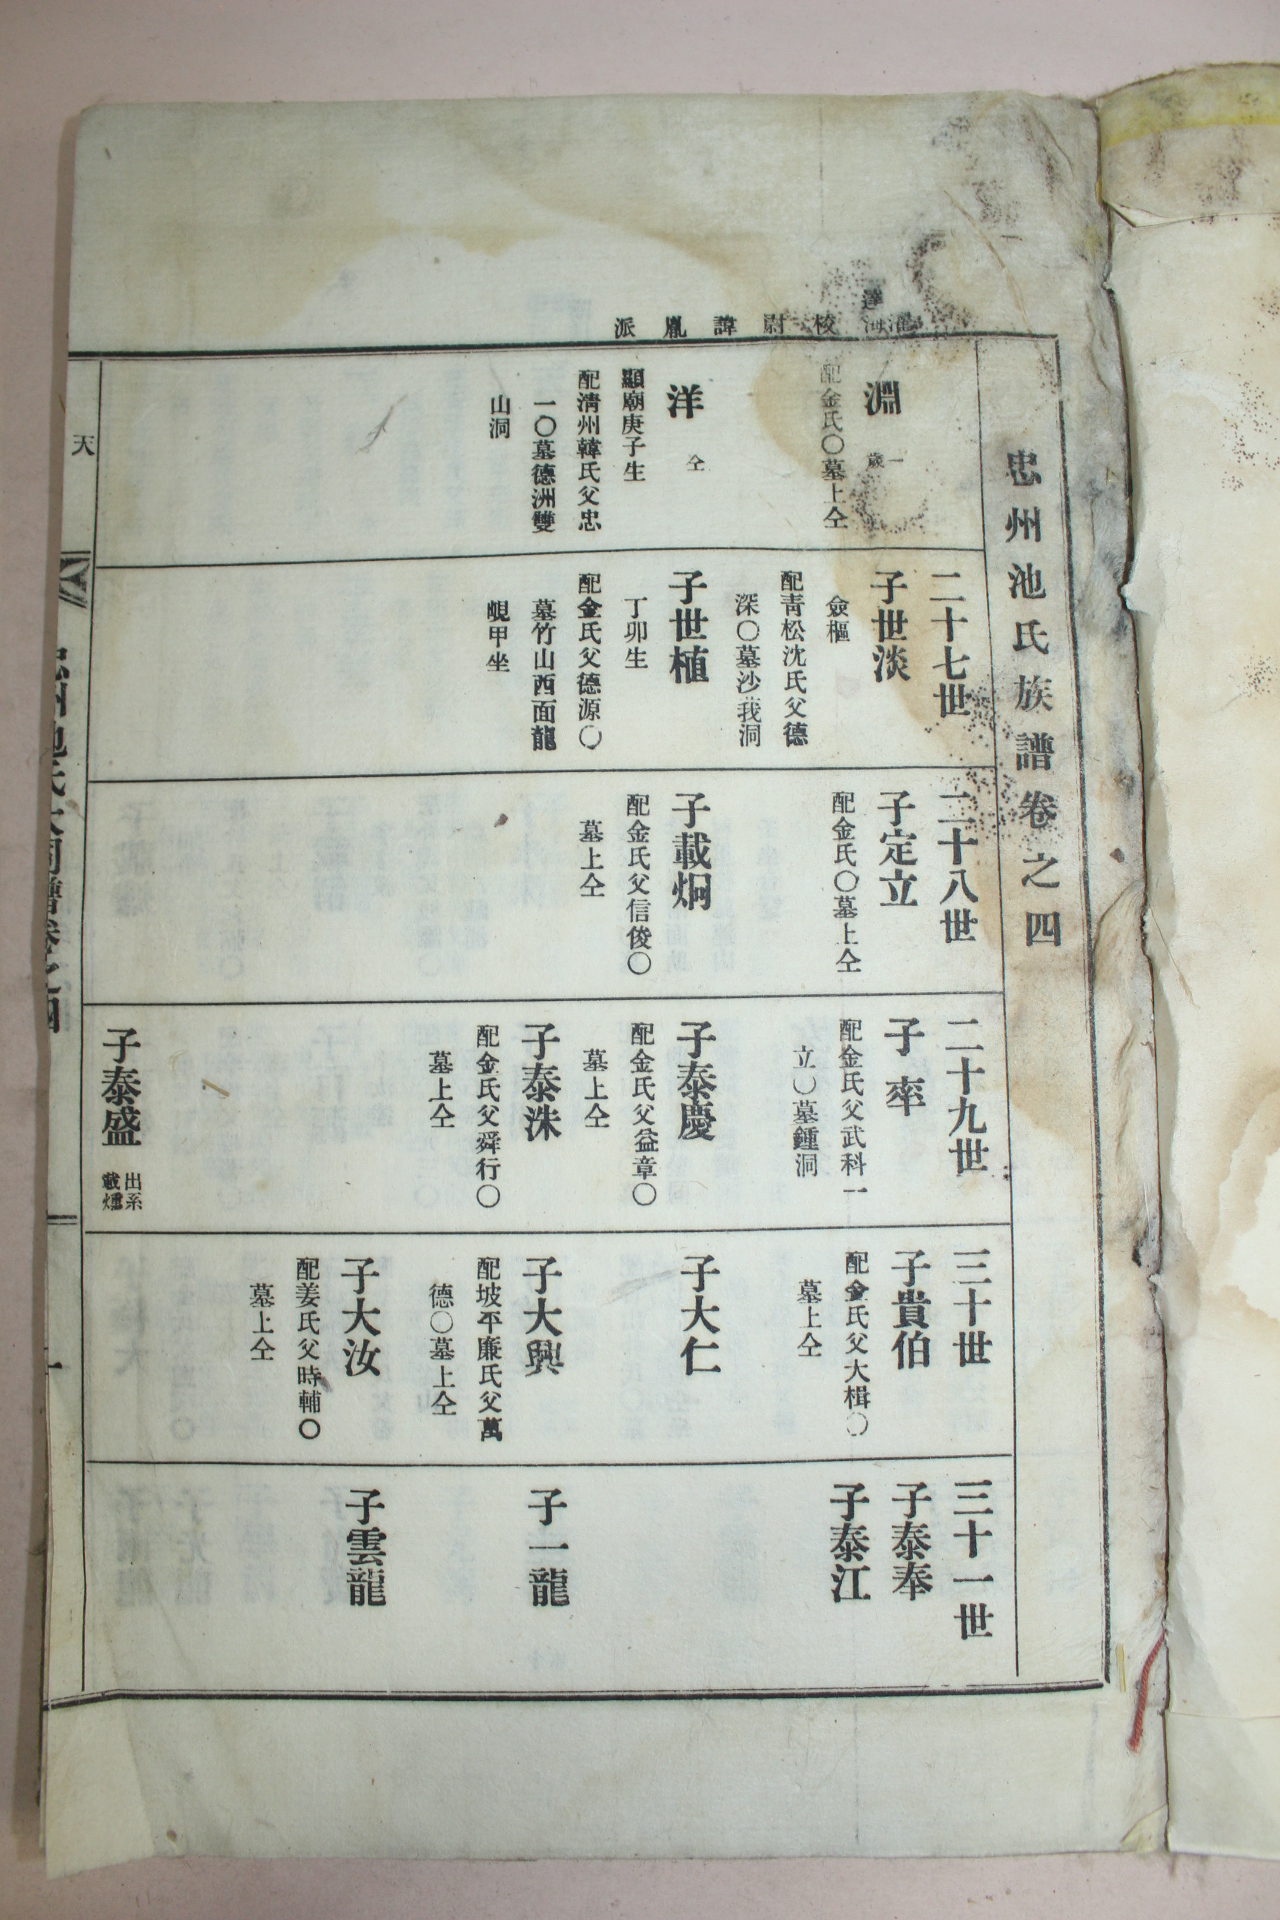 忠州池氏族譜卷之四
校尉諱胤派
淵
一歲
配金氏〇墓上仝
洋
仝
顯廟庚子生
配淸州韓氏父忠
一〇墓德洲雙
山洞
二十七世
子世淡
僉樞
配靑松沈氏父德
深〇墓沙莪洞
子世植
丁卯生
配金氏父德源〇
墓竹山西面龍
峴甲坐
二十八世
子定立
配金氏〇墓上仝
子載炯
配金氏父信俊〇
墓上仝
二十九世
子率
配金氏父武科一
立〇墓鍾洞
子泰慶
配金氏父益章〇
墓上仝
子泰洙
配金氏父舜行〇
墓上仝
子泰盛
出系
載爀
三十世
子貴伯
配金氏父大楫〇
墓上仝
子大仁
子大興
配坡平廉氏父萬
德〇墓上仝
子大汝
配姜氏父時輔〇
墓上仝
三十一世
子泰奉
子泰江
子一龍
子雲龍
天